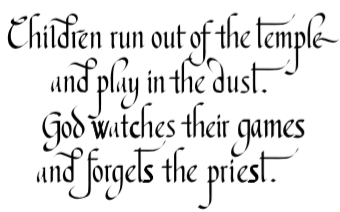 Children run out of the temple
and play in the dust.
God watches their games
and forgets the priest.